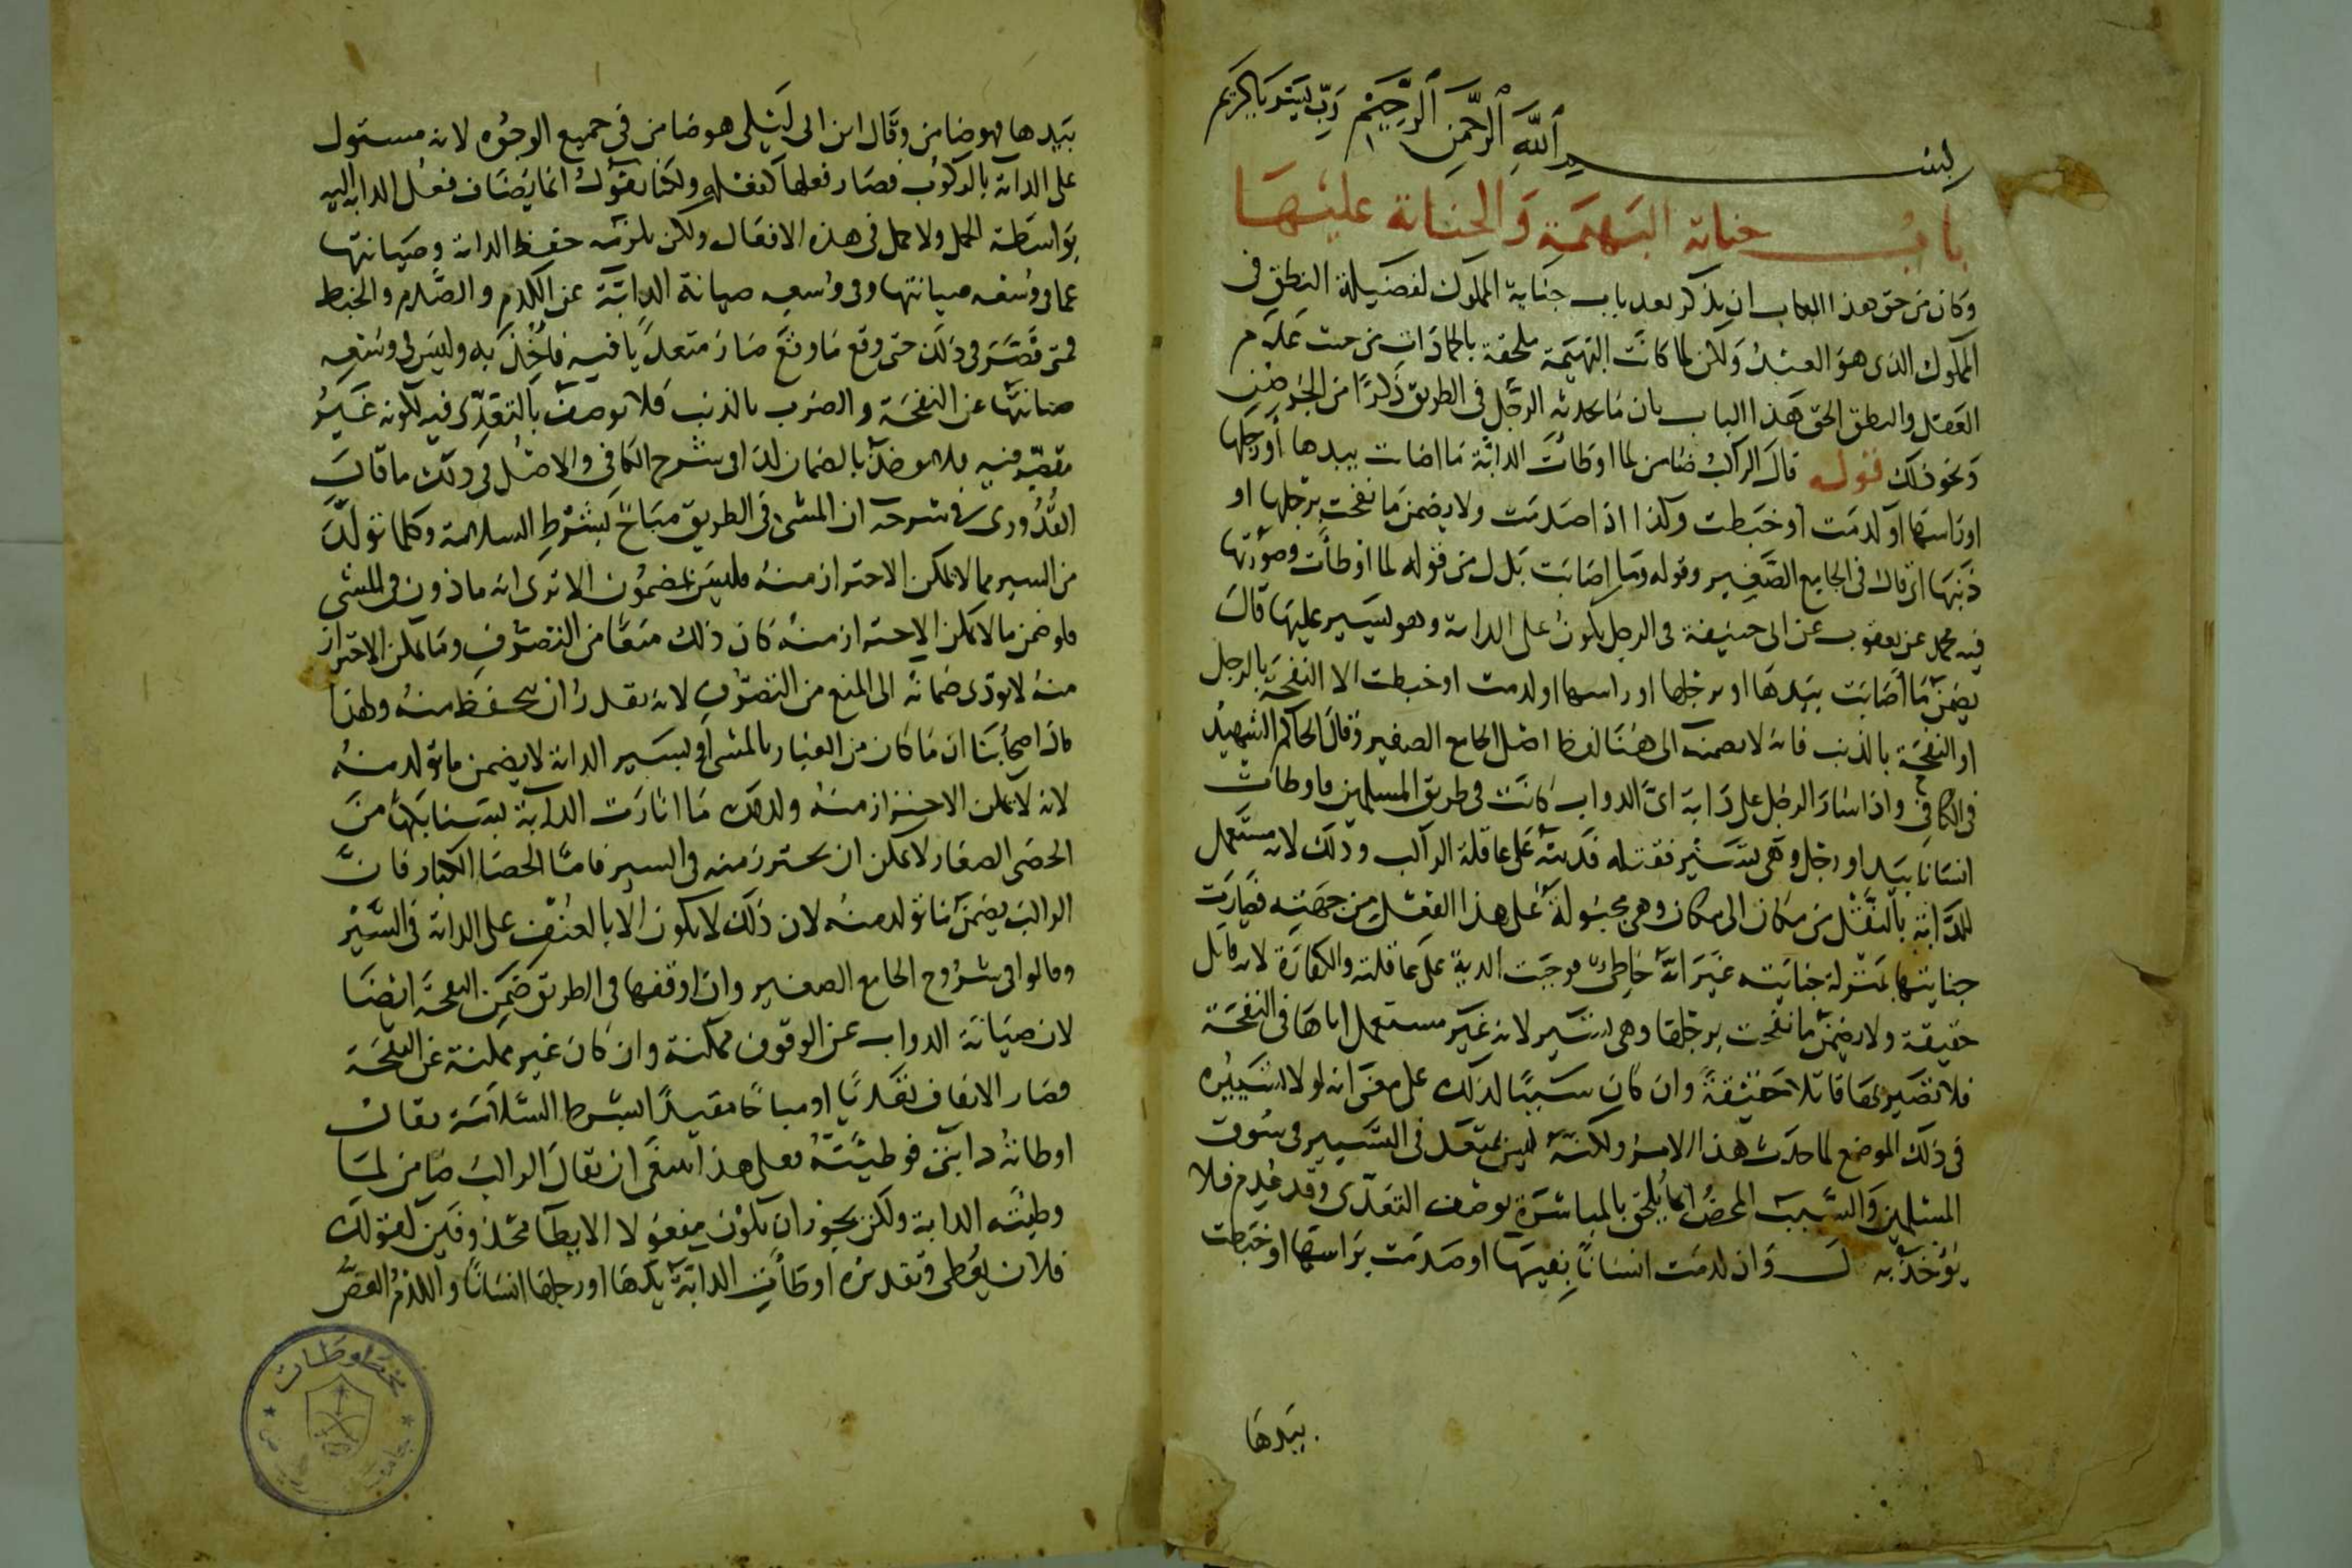 بسم الله الرحمن الرحيم رب يسر يا كريم
باب جناية البهيمة والجناية عليها
وكان من حق هذا الباب ان يذكر بعد باب جناية المملوك لفضيلة النطق في
المملوك الذي هو العبد ولكن لما كانت البهيمة ملحقة بالجمادات من حيث عدم
العقل والنطق الحق هذا الباب بان ما يحدثه الرجل في الطريق ذكرا من الجرصن
ونحو ذلك قوله قال الراكب ضامن لما اوطات الدابة ما اصابت بيدها أو رجلها
او راسها او كدمت او خبطت وكذا اذا صدمت ولا يضمن ما نفحت برجلها او
ذنبها اي قال في الجامع الصغير وقوله وما اصابت بدل من قوله لما اوطأت وصورتها
فيه محمد عن يعقوب عن ابي حنيفة في الرجل يكون على الدابة وهو يسير عليها قال
يضمن ما أصابت بيدها او برجلها او راسها او كدمت او خبطت الا النفحة بالرجل
او النفحة بالذنب فانه لا يضمنه الى هنا لفظ اصل الجامع الصغير وقال الحاكم الشهيد
في الكافي واذا سار الرجل على دابة اي الدواب كانت في طريق المسلمين فاوطات
انسانا بيد او رجل وهي تسير فقتله فديته على عاقلة الراكب وذلك لانه مستعمل
للدابة بالنقل من مكان الى مكان وهي محمولة على هذا الفعل من جهته فصارت
جنايتها بمنزلة جنايته غير انه خاطئ فوجبت الدية على عاقلته والكفارة لانه قاتل
حقيقة ولا يضمن ما نفحت برجلها وهي تسير لانه غير مستعمل اياها في النفحة
فلا تصير بها قاتلا حقيقة وان كان سببا لذلك على معنى انه لولا تسييره
في ذلك الموضع لما حدث هذا الامر ولكنه ليس بمتعد في التسيير في سوق
المسلمين والسبب المحض انما يلحق بالمباشرة بوصف التعدي وقد عدم فلا
يؤخذ به وان كدمت انسانا بفيها او صدمت براسها او خبطت
بيدها
بيدها فهو ضامن وقال ابن ابي ليلى هو ضامن في جميع الوجوه لانه مستول
على الدابة بالركوب فصار فعلها كفعله ولكنا نقول انما يضاف فعل الدابة اليه
بواسطة الحمل ولا حمل في هذه الافعال ولكن يلزمه حفظ الدابة وصيانتها
عما في وسعه صيانتها وفي وسعه صيانة الدابة عن الكدم والصدم والخبط
فمتى قصر في ذلك حتى وقع ما وقع صار متعديا فيه فأخذ به وليس في وسعه
صيانتها عن النفحة والضرب بالذنب فلا يوصف بالتعدي فيه لكونه غير
مقصر فيه فلا يؤخذ بالضمان كذا في شرح الكافي والاصل في ذلك ما قال
القدوري في شرحه ان المشي في الطريق مباح بشرط السلامة وكلما تولد
من السير مما لا يمكن الاحتراز منه فليس بمضمون الا ترى انه ماذون في المشي
فلو ضمن ما لا يمكن الاحتراز منه كان ذلك منعا من التصرف وما يمكن الاحتراز
منه لا يؤدي ضمانه الى المنع من التصرف لانه يقدر ان يتحفظ منه ولهذا
قال اصحابنا ان ما كان من الغبار بالمشي أو بسير الدابة لا يضمن ما تولد منه
لانه لا يمكن الاحتراز منه وكذلك ما اثارت الدابة بسنابكها من
الحصى الصغار لا يمكن ان يحترز منه في السير فاما الحصا الكبار فان
الراكب يضمن ما تولد منه لان ذلك لا يكون الا بالعنف على الدابة في السير
وقالوا في شروح الجامع الصغير وان اوقفها في الطريق ضمن النفحة ايضا
لان صيانة الدواب عن الوقوف ممكنة وان كان غير ممكنة عن النفحة
فصار الايقاف تعديا او مباحا مقيدا بشرط السلامة يقال
اوطاته دابتي فوطئته فعلى هذا ينبغي ان يقال الراكب ضامن لما
وطئته الدابة ولكن يجوز ان يكون مفعولا الايطآ محذوفين كقولك
فلان يعطي وتقديره اوطأت الدابة يدها او رجلها انسانا والكدم العض
مخطوطات